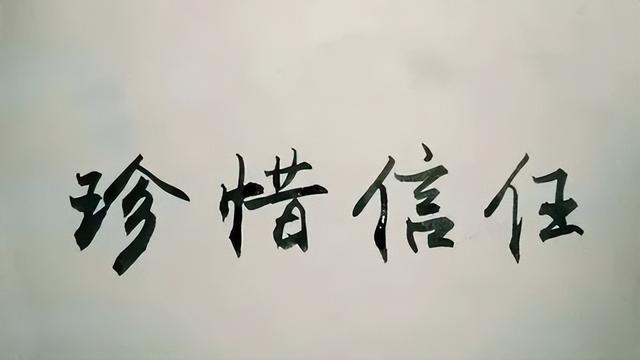 珍惜信任